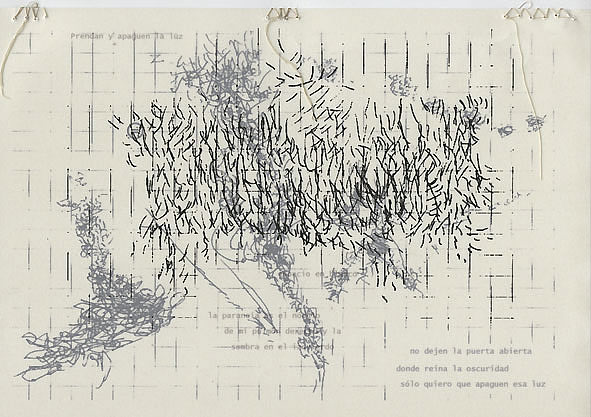 Prendan y apaguen la luz
en
la paranoia es el
de mi y la
sombra en el
no dejen la puerta abierta
donde reina la oscuridad
sólo quiero que apaguen esa luz